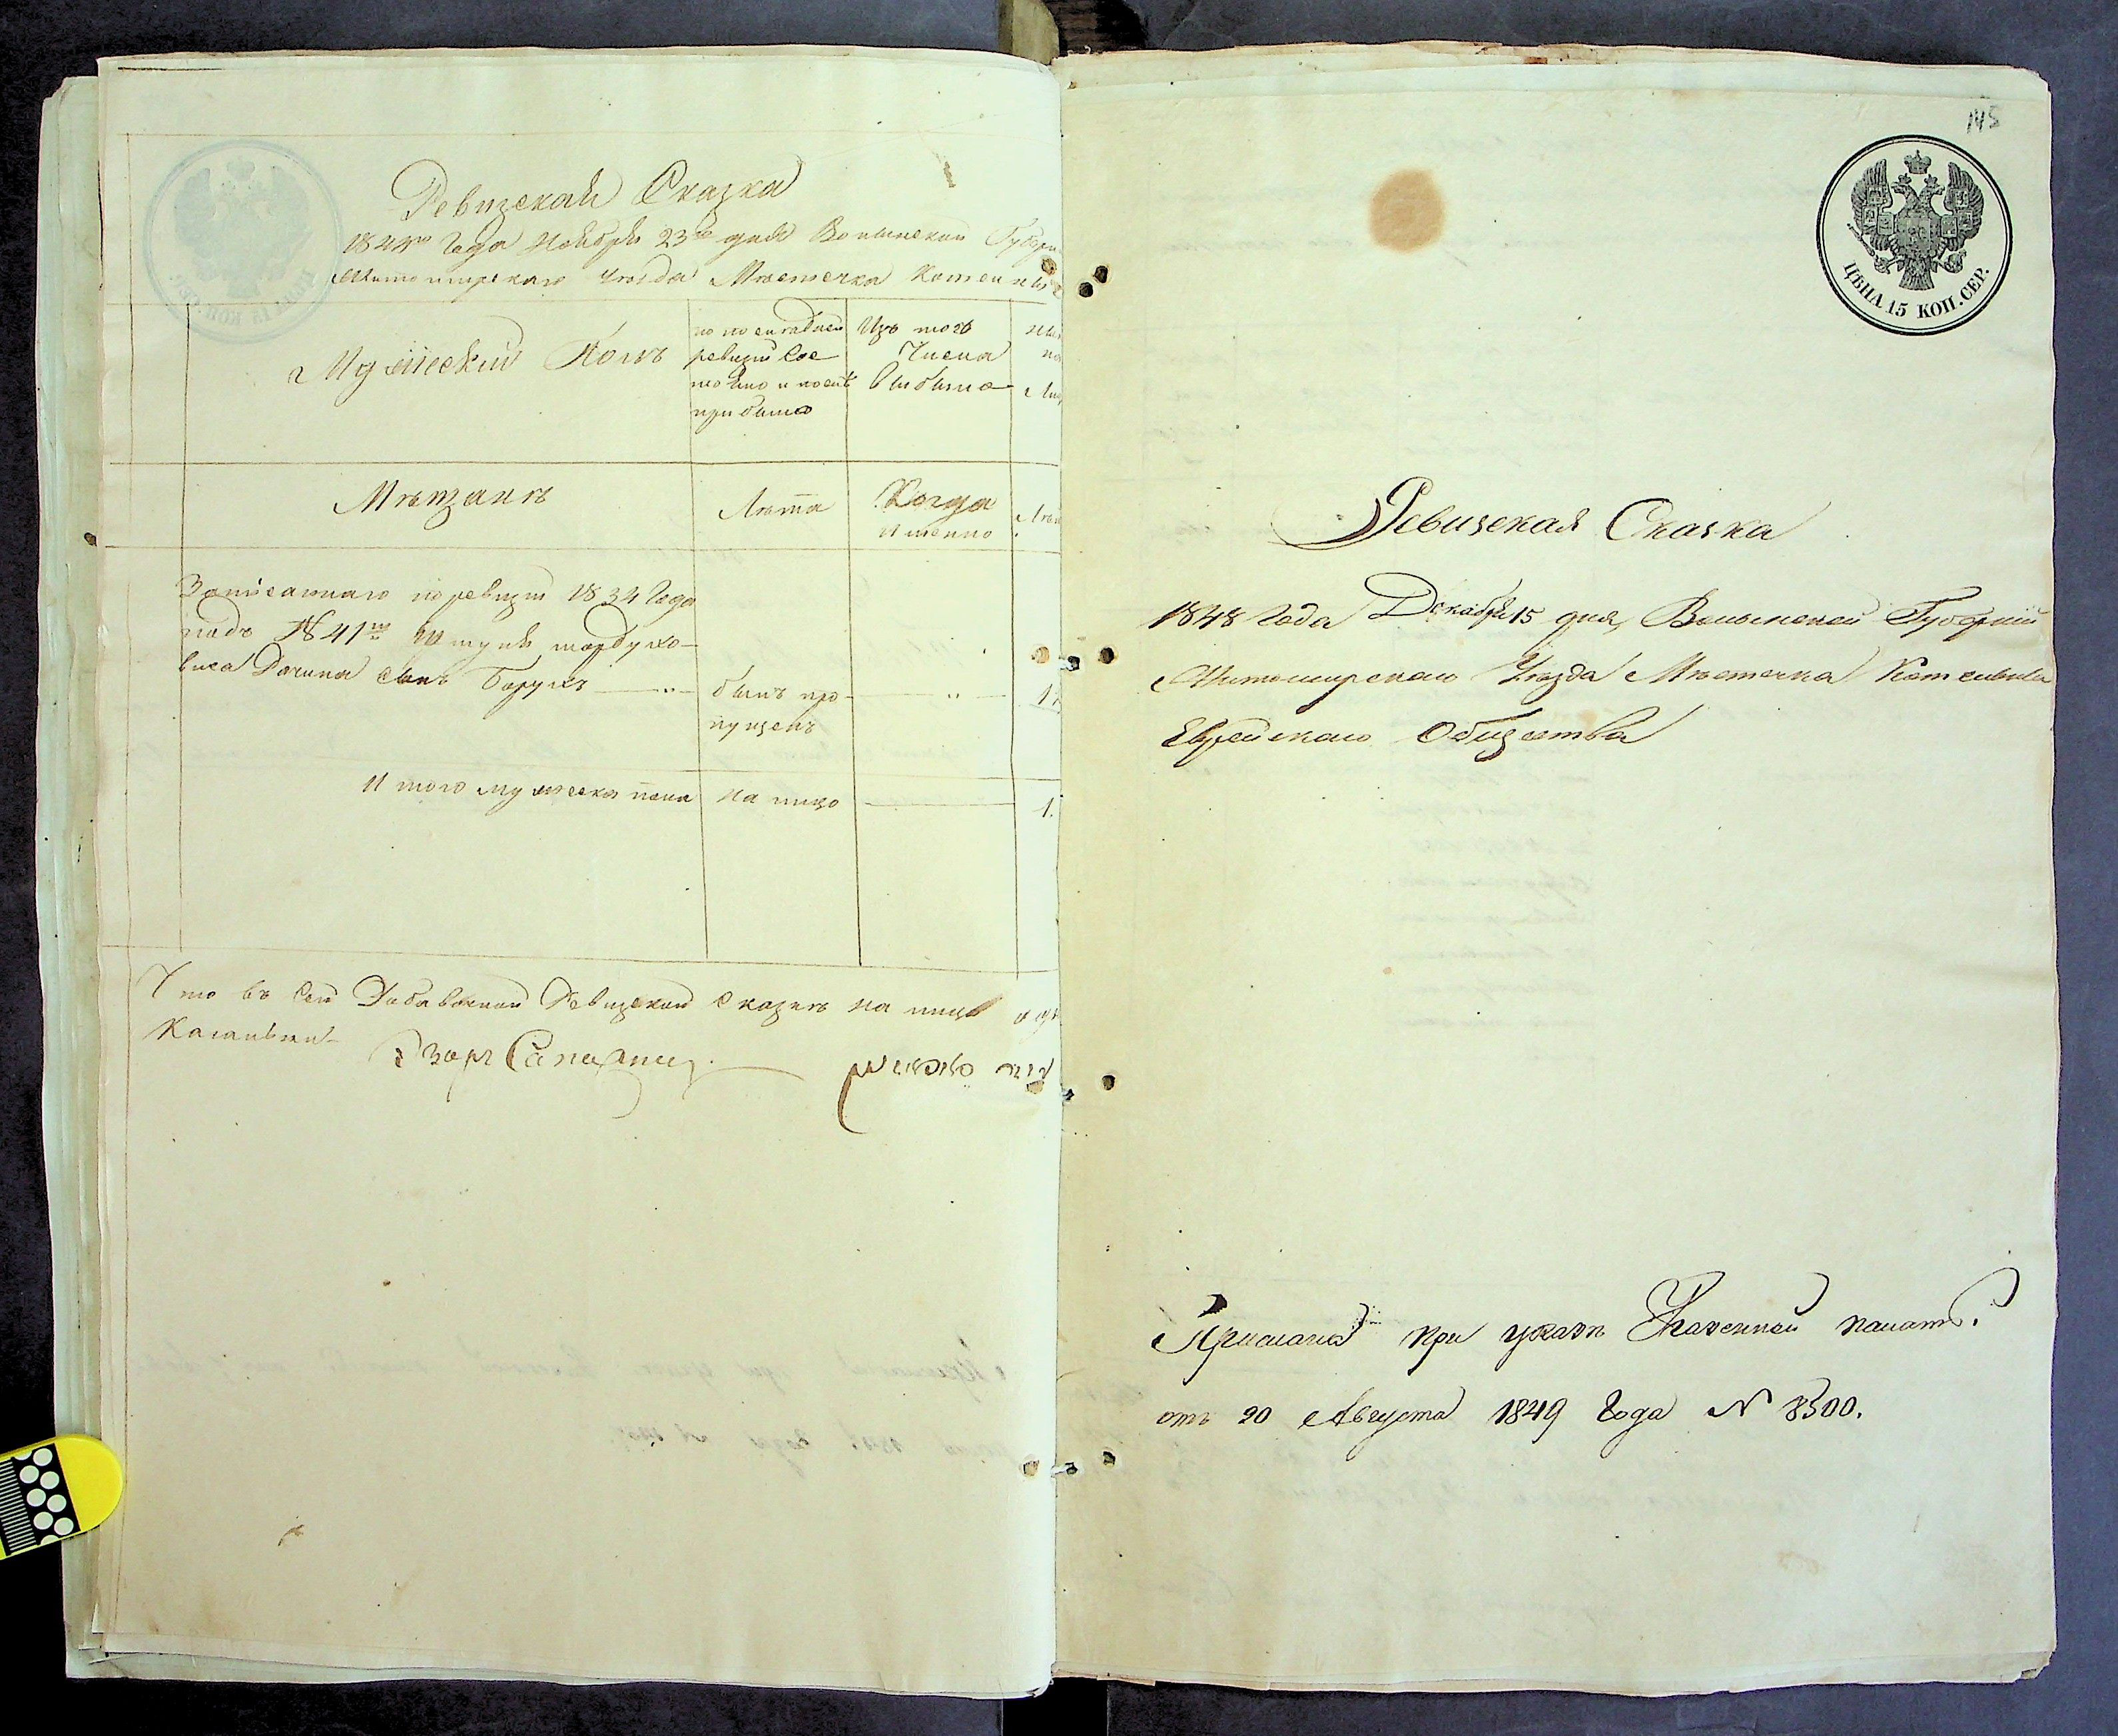 Ревизская Сказка
1844го Года Ноября 23го дня Волынской Губерн
Житомирскаго Уезда Местечка Котельни
Мужеский Полъ
по последней
ревизіи сос
тояло и после
прибыло
Изъ того
Числа
выбыло
Мѣщанъ
Лѣта
Когда
Именно
Записаннаго по ревизіи 1834 Года
подъ №41мъ мордухо-
виса сынъ Борухъ
былъ про-
пущенъ
И того мужеска пола на лицо
1.
Что въ Сей Добавочной Ревизской Сказкѣ на лицо
145
ЦѢНА 15 КОП. СЕР.
Ревизская Сказка
1848 Года Декабря 15 дня, Волынской Губерніи
Житомирскаго Уѣзда Мѣстечка Котельни
Еврейскаго Общества
Прислана при указѣ Казенной палаты
отъ 20 Августа 1849 Года № 8300.